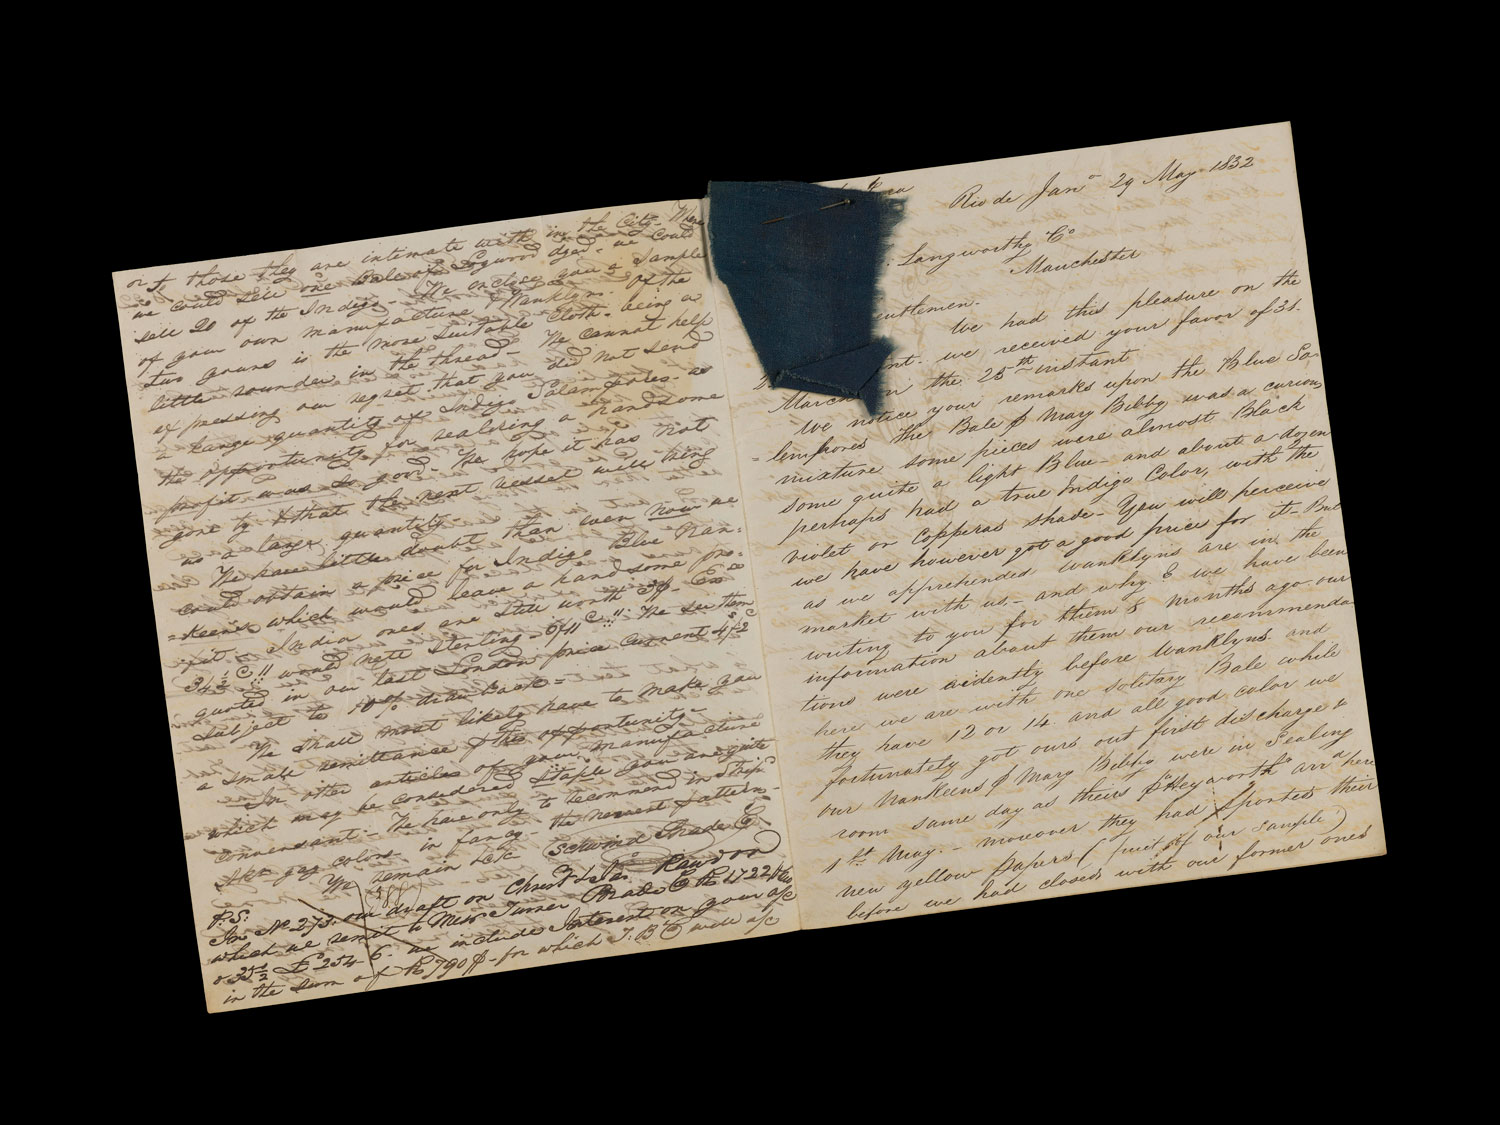 or to those they are intimate with in the City. Where
we could sell one Bale of Logwood dyed. we could
sell 20 of the Indigo. We enclose you a Sample
of your own manufacture & Wanklyns. Of the
two yours is the more suitable Cloth. being a
little rounder in the thread - We cannot help
expressing our regret that you did not send
a large quantity of Indigo Salampores - as
the opportunity for realizing a handsome
profit was so good - We hope it has not
gone by & that the next vessel will bring
us a large quantity -
We have little doubt than even now we
could obtain a price for Indigo Blue Nan-
=keens which would leave a handsome pro=
fit. India ones are still worth
would nett sterling We see them
quoted in our last London price current
Subject to 10 p% draw back =
We shall most likely have to make you
a small remittance p this opportunity -
In other articles of your manufacture
which may be considered Staple you are quite
conversant - We have only to recommend in Strip
gay colors in fancy - the newest pattern -
We remain &c &c
Schwind Brade & Co
P.S.
In No 273. our draft on Christr & Jas. Rawdon
which we remit to Messrs Turner Brade & Co
we include Interest on your a/c
in the sum of for which T. B & Co will a/c
Rio de Jano 29 May 1832
Langworthy Co
Manchester
entlemen.
We had this pleasure on the
nt. we received your favor of 31.
March on the 25th instant
We notice your remarks upon the Blue Sa-
=lempores the Bale p Mary Bibby was a curious
mixture some pieces were almost Black
some quite a light Blue - and about a dozen
perhaps had a true Indigo Color, with the
violet or Copperas shade - You will perceive
we have however got a good price for it - But
as we apprehended Wanklyns are in the
market with us, - and why & we have been
writing to you for them 8 months ago. our
information about them our recommenda-
tions were evidently before Wanklyns. and
here we are with one solitary Bale while
they have 12 or 14. and all good color we
fortunately got ours out first discharge &
our Nankeens p Mary Bibby were in Sealing
room same day as theirs p "Heyworth" arrd here
1st May. - moreover they had sported their
new yellow papers (fruit of our sample)
before we had closed with our former ones